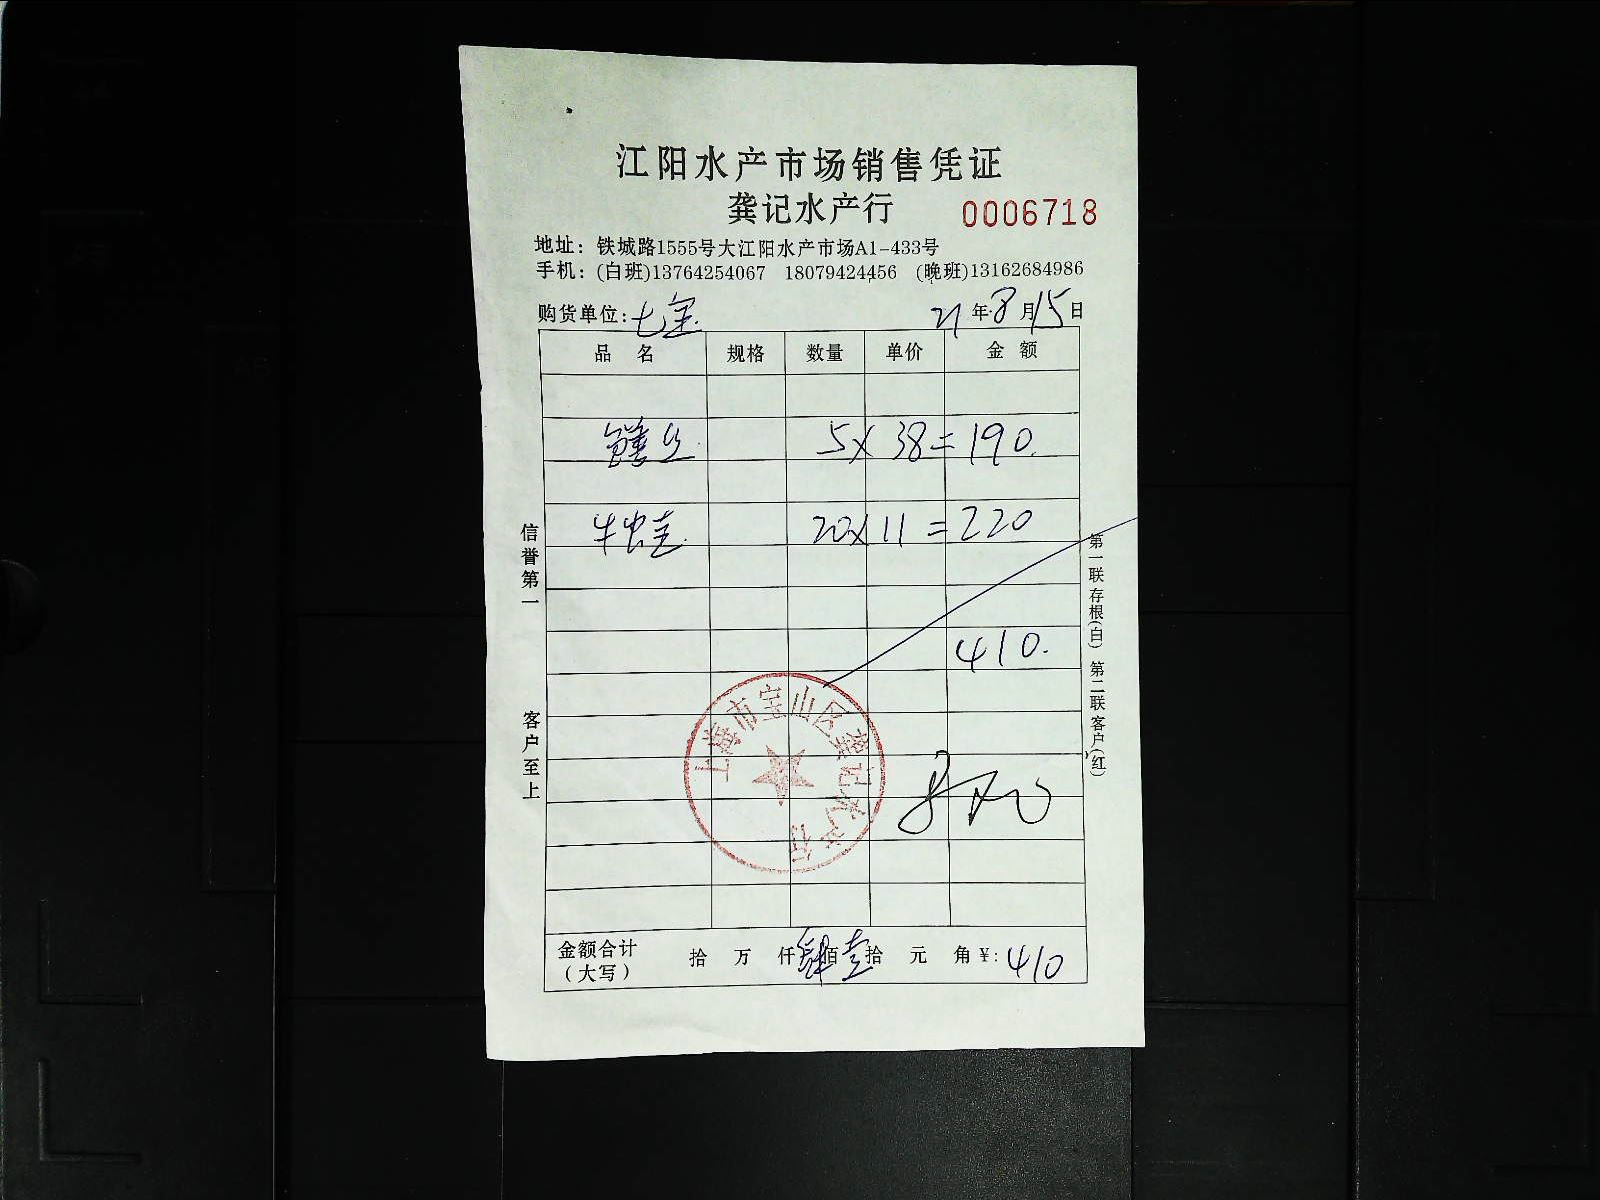 江阳水产市场销售凭证
龚记水产行 0006718
地址：铁城路1555号大江阳水产市场A1-433号
手机：(白班)13764254067 18079424456 (晚班)13162684986
购货单位：七宝 21年8月15日
品名 规格 数量 单价 金额
鳝丝 5×38=190.
牛蛙 20×11=220
410.
信誉第一 客户至上
第一联存根(白) 第二联客户(红)
上海市宝山区龚记水产行
金额合计（大写） 拾 万 仟 肆佰壹拾 元 角 ¥:410